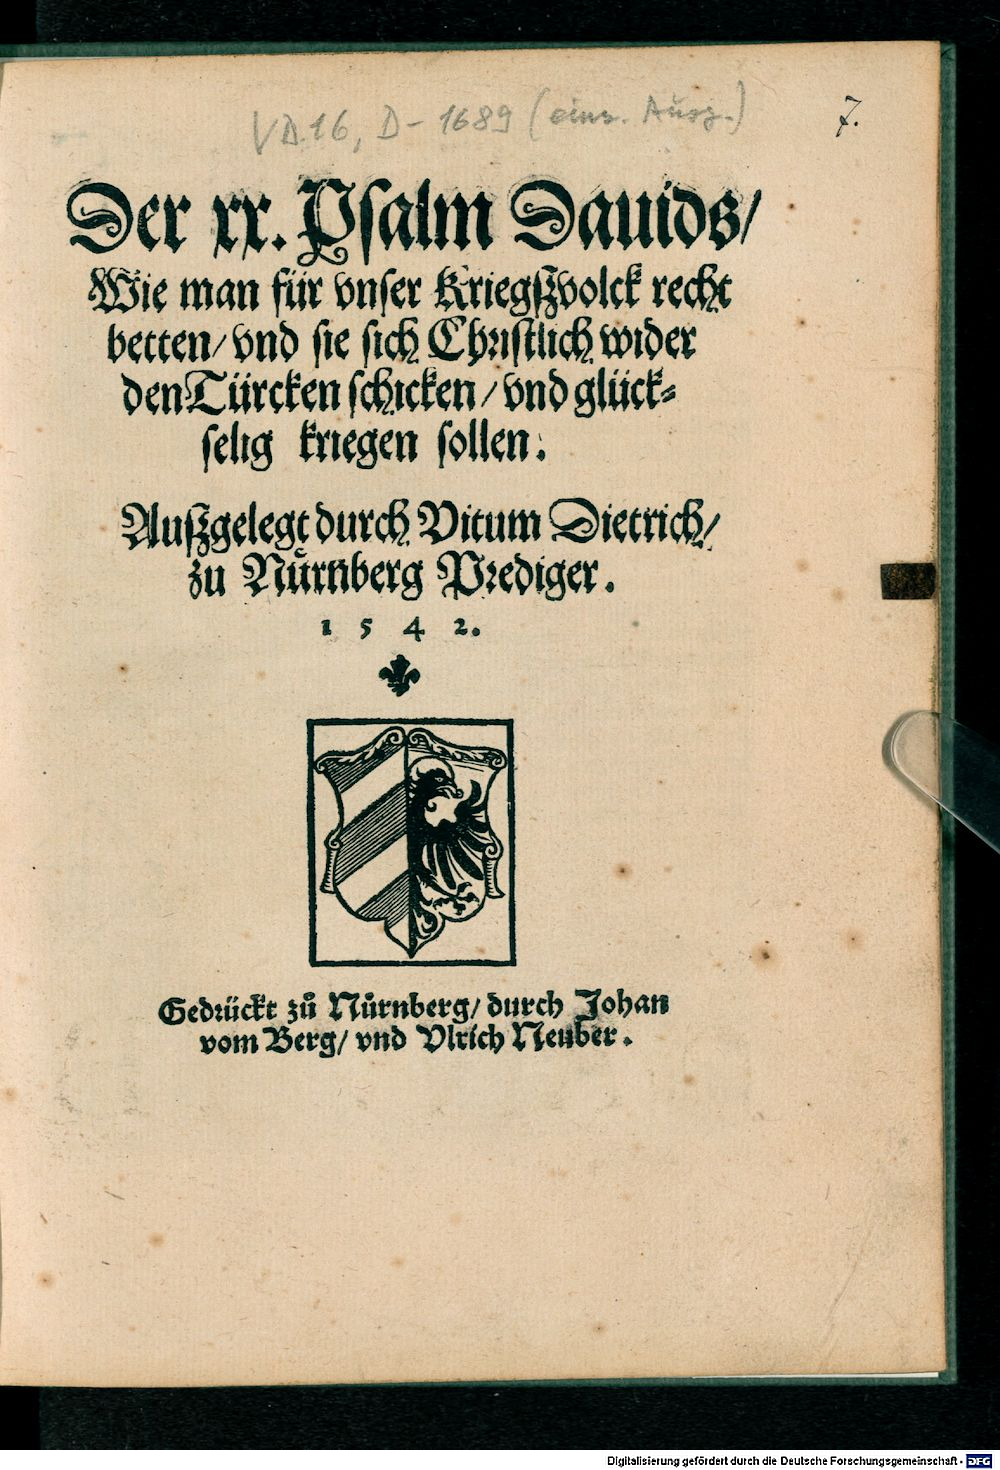 VD.16, D-1689 (einz. Ausg.)
7.
Der xx. Psalm Dauids/
Wie man für vnser Kriegßvolck recht
betten/ vnd sie sich Christlich wider
den Türcken schicken/ vnd glück-
selig kriegen sollen.
Außgelegt durch Vitum Dietrich/
zu Nůrnberg Prediger.
1 5 4 2.
Gedrückt zů Nůrnberg/ durch Johan
vom Berg/ vnd Vlrich Neuber.
Digitalisierung gefördert durch die Deutsche Forschungsgemeinschaft - DFG